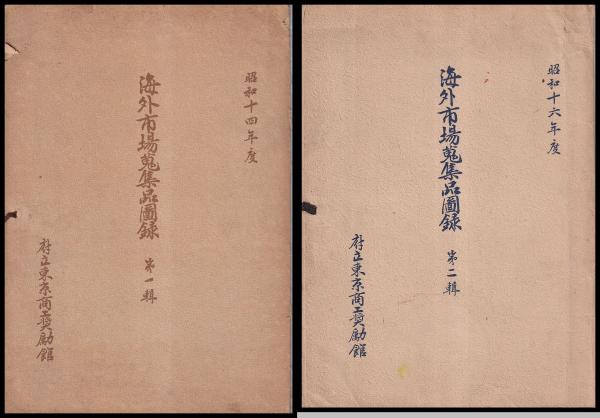 昭和十四年度
海外市場蒐集品圖録 第一輯
府立東京商工奬勵館
昭和十六年度
海外市場蒐集品圖録 第二輯
府立東京商工奬勵館